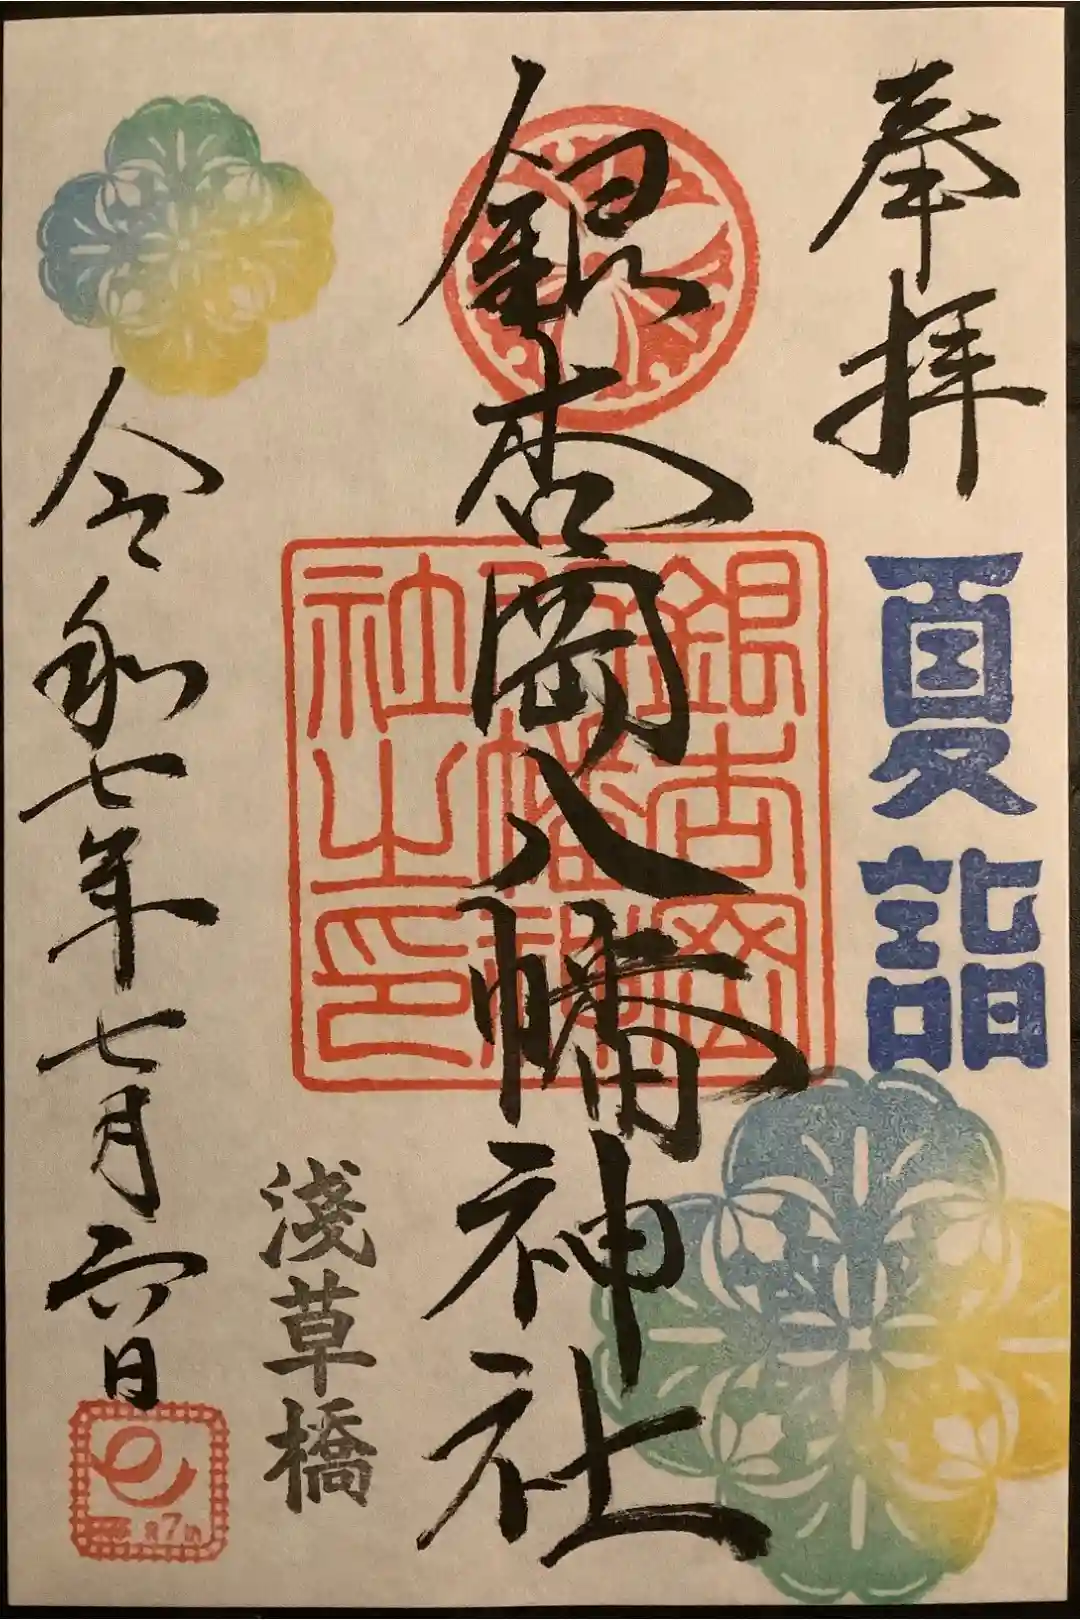 奉拝
夏詣
銀杏岡八幡神社
銀杏岡
八幡神
社之印
淺草橋
令和七年七月六日